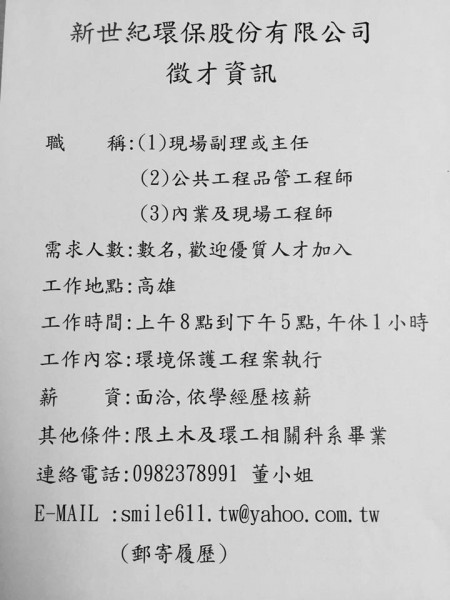 新世紀環保股份有限公司
徵才資訊
職　　稱:(1)現場副理或主任
(2)公共工程品管工程師
(3)內業及現場工程師
需求人數:數名,歡迎優質人才加入
工作地點:高雄
工作時間:上午8點到下午5點,午休1小時
工作內容:環境保護工程案執行
薪　　資:面洽,依學經歷核薪
其他條件:限土木及環工相關科系畢業
連絡電話:0982378991 董小姐
E-MAIL :smile611.tw@yahoo.com.tw
(郵寄履歷)